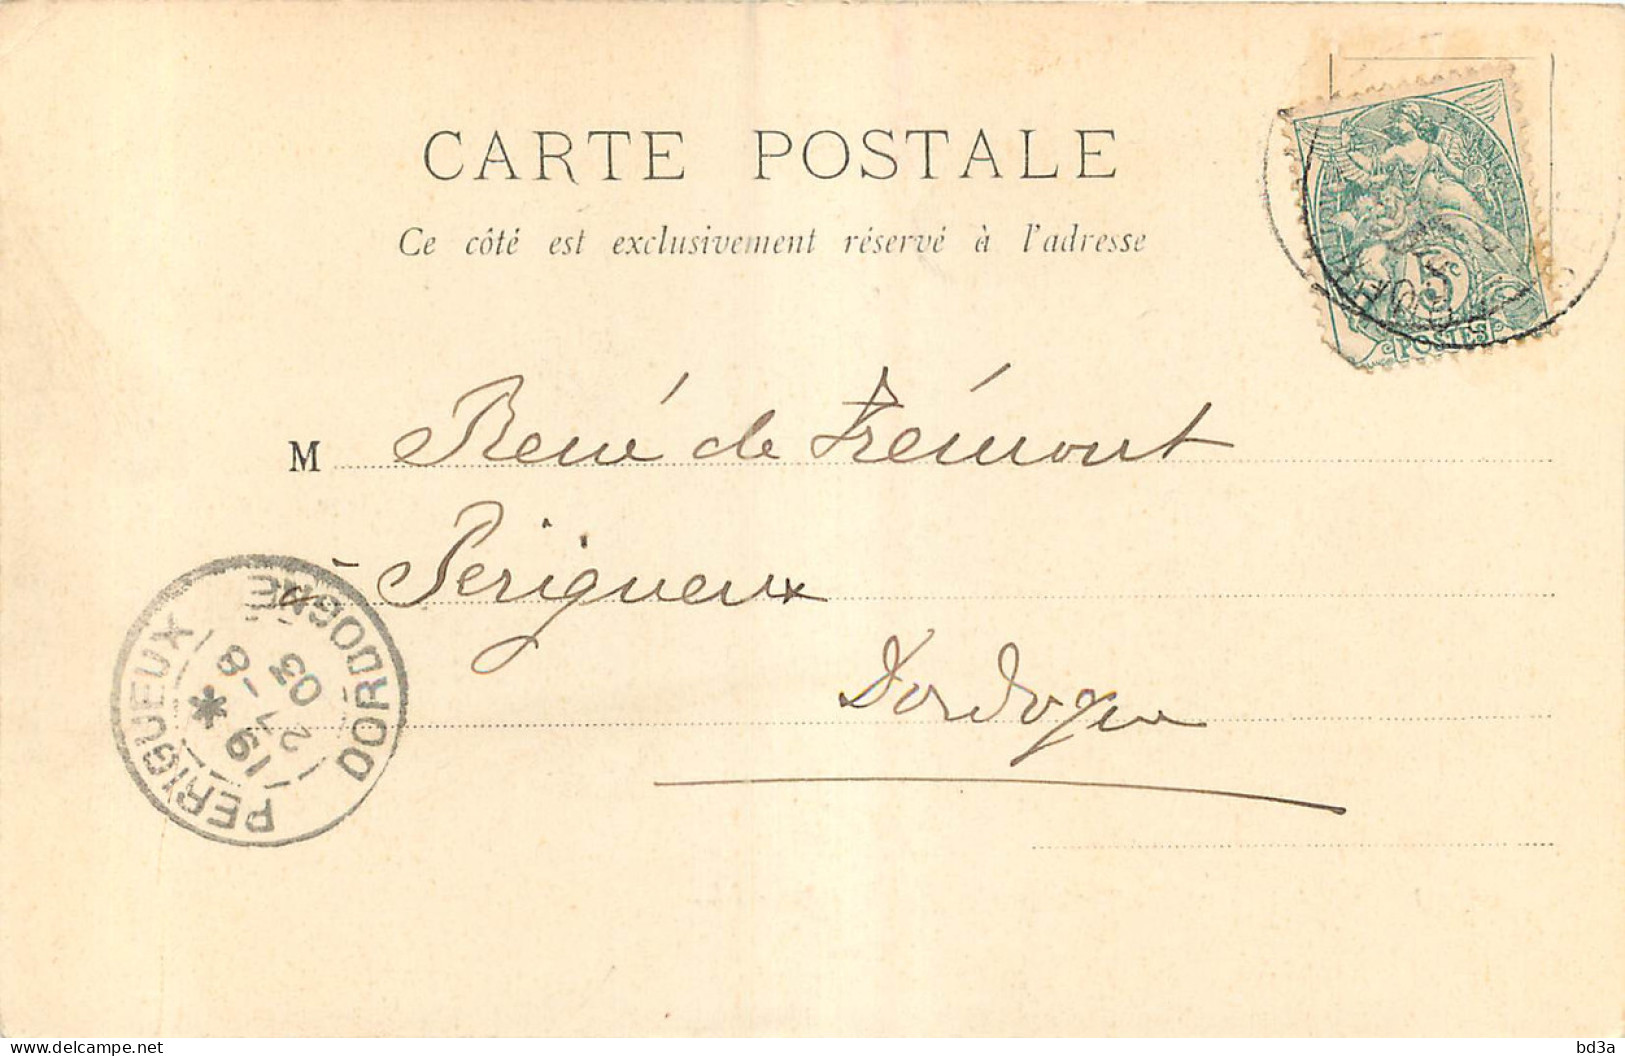 CARTE POSTALE
Ce côté est exclusivement réservé à l'adresse
5c
POSTES
M René de Frémont
à Périgueux
Dordogne
PERIGUEUX
DORDOGNE
19 *
2 1 -8
03
delcampe.net
bd3a